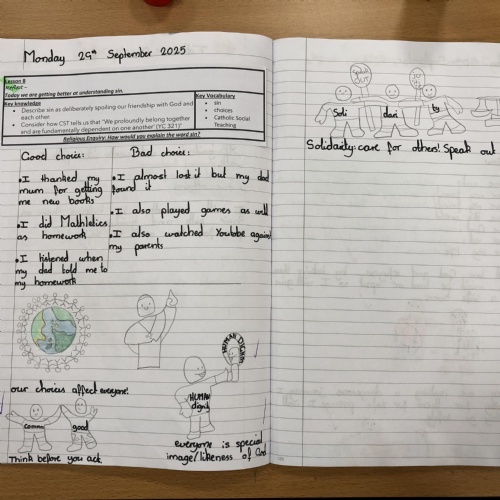 Monday 29th September 2025
Lesson 8
Reflect -
Today we are getting better at understanding sin.
Key knowledge
Describe sin as deliberately spoiling our friendship with God and
each other.
Consider how CST tells us that 'We profoundly belong together
and are fundamentally dependent on one another' (YC 321)'
Key Vocabulary
sin
choices
Catholic Social
Teaching
Religious Enquiry: How would you explain the word sin?
Good choice:
•I thanked my
mum for getting
me new books
•I did Mathletics
as homework
•I listened when
my dad told me to
my homework
Bad choice:
•I almost lost it but my dad
found it
•I also played games as well
•I also watched Youtobe against
my parents
our choices affect everyone!
common
good
Think before you act.
HUMAN
dignity
everyone is special
image/likeness of God
Speak
OUT
Soli
dari
ty
Solidarity: care for others! Speak out